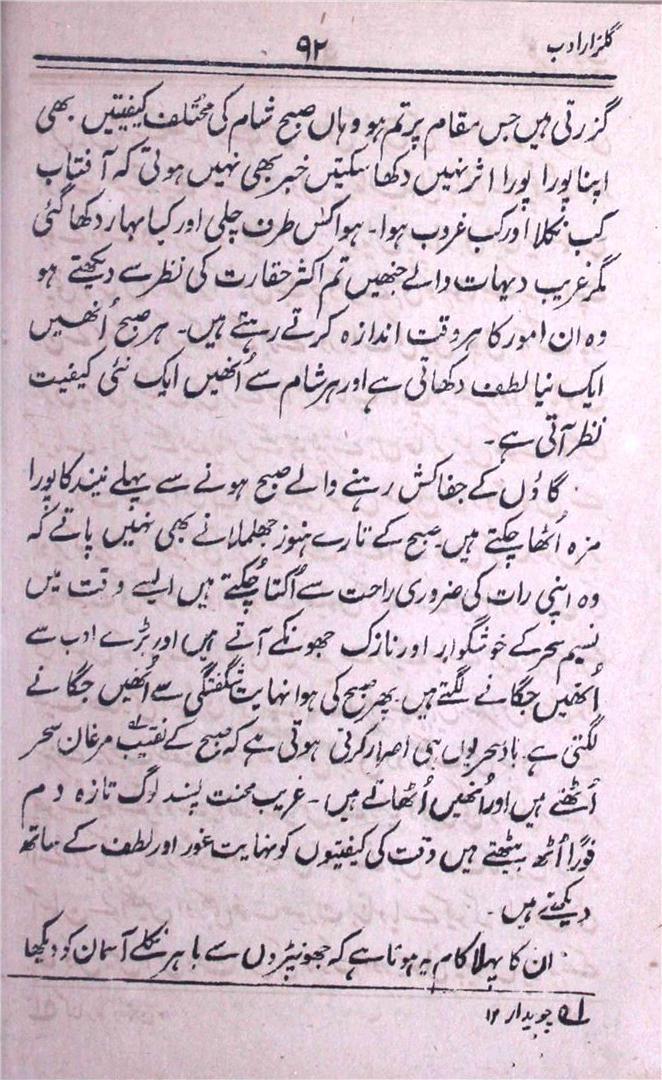 گلزار ادب
۹۲
گزرتی ہیں جس مقام پر تم ہو وہاں صبح شام کی مختلف کیفیتیں بھی
اپنا پورا پورا اثر نہیں دکھا سکتیں خبر بھی نہیں ہوتی کہ آفتاب
کب نکلا اور کب غروب ہوا۔ ہوا کس طرف چلی اور کیا بہار دکھا گئی
مگر غریب دیہات والے جنھیں تم اکثر حقارت کی نظر سے دیکھتے ہو
وہ ان امور کا ہر وقت اندازہ کرتے رہتے ہیں۔ ہر صبح اُنھیں
ایک نیا لطف دکھاتی ہے اور ہر شام سے اُنھیں ایک نئی کیفیت
نظر آتی ہے۔
گاؤں کے جفاکش رہنے والے صبح ہونے سے پہلے نیند کا پورا
مزہ اُٹھا چکتے ہیں۔ صبح کے تارے ہنوز جھلملانے بھی نہیں پاتے کہ
وہ اپنی رات کی ضروری راحت سے اُکتا چُکتے ہیں ایسے وقت میں
نسیم سحر کے خوشگوار اور نازک جھونکے آتے ہیں اور بڑے ادب سے
اُنھیں جگانے لگتے ہیں پھر صبح کی ہوا نہایت شگفتگی سے اُنھیں جگانے
لگتی ہے۔ باد سحر یوں ہی اصرار کرتی ہوتی ہے کہ صبح کے نقیب ؎۱ مرغان سحر
اُٹھتے ہیں اور اُنھیں اُٹھاتے ہیں۔ غریب محنت پسند لوگ تازہ دم
فورًا اُٹھ بیٹھتے ہیں وقت کی کیفیتوں کو نہایت غور اور لطف کے ساتھ
دیکھتے ہیں۔
ان کا پہلا کام یہ ہوتا ہے کہ جھونپڑوں سے باہر نکلے آسمان کو دیکھا
؎۱ چوبدار ۱۲